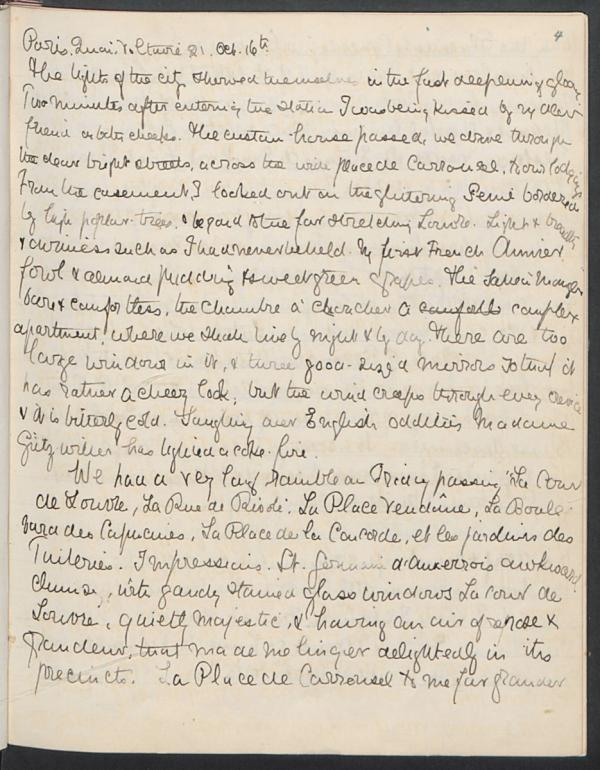 4
Paris. Quai Voltaire 21. Oct. 16th
The lights of the city showed themselves in the fast deepening gloom
Two minutes after entering the station I was being kissed by my dear
friend on both cheeks. The custom-house passed, we drove through
the dear bright streets, across the wide place de Carrousel, to our lodgings
From the casement I looked out on the glittering Seine bordered
by high poplar-trees, & beyond to the far stretching Louvre. Light &
& airiness such as I had never beheld. My first French dinner
fowl & almond pudding & sweet green grapes. The Salle à Manger
bare & comfortless, the chambre à coucher a comfortable complex
apartment, where we shall live by night & by day. There are two
large windows in it, & three good-sized mirrors so that it
has rather a cheery look, but the wind creeps through every crevice
& it is bitterly cold. Laughing over English oddities Madame
has lighted a coke-fire.
We had a very long ramble on Friday passing "La Cour
de Louvre, La Rue de Rivoli, La Place Vendôme, La Boule-
vard des Capucines, La Place de la Concorde, et les jardins des
Tuileries. Impressions. St. Germain d'Auxerrois awkward
clumsy, with gaudy stained glass windows La cour de
Louvre, quietly majestic, & having an air of repose &
grandeur, that made me linger delightedly in its
precincts. La Place de Carrousel to me far grander